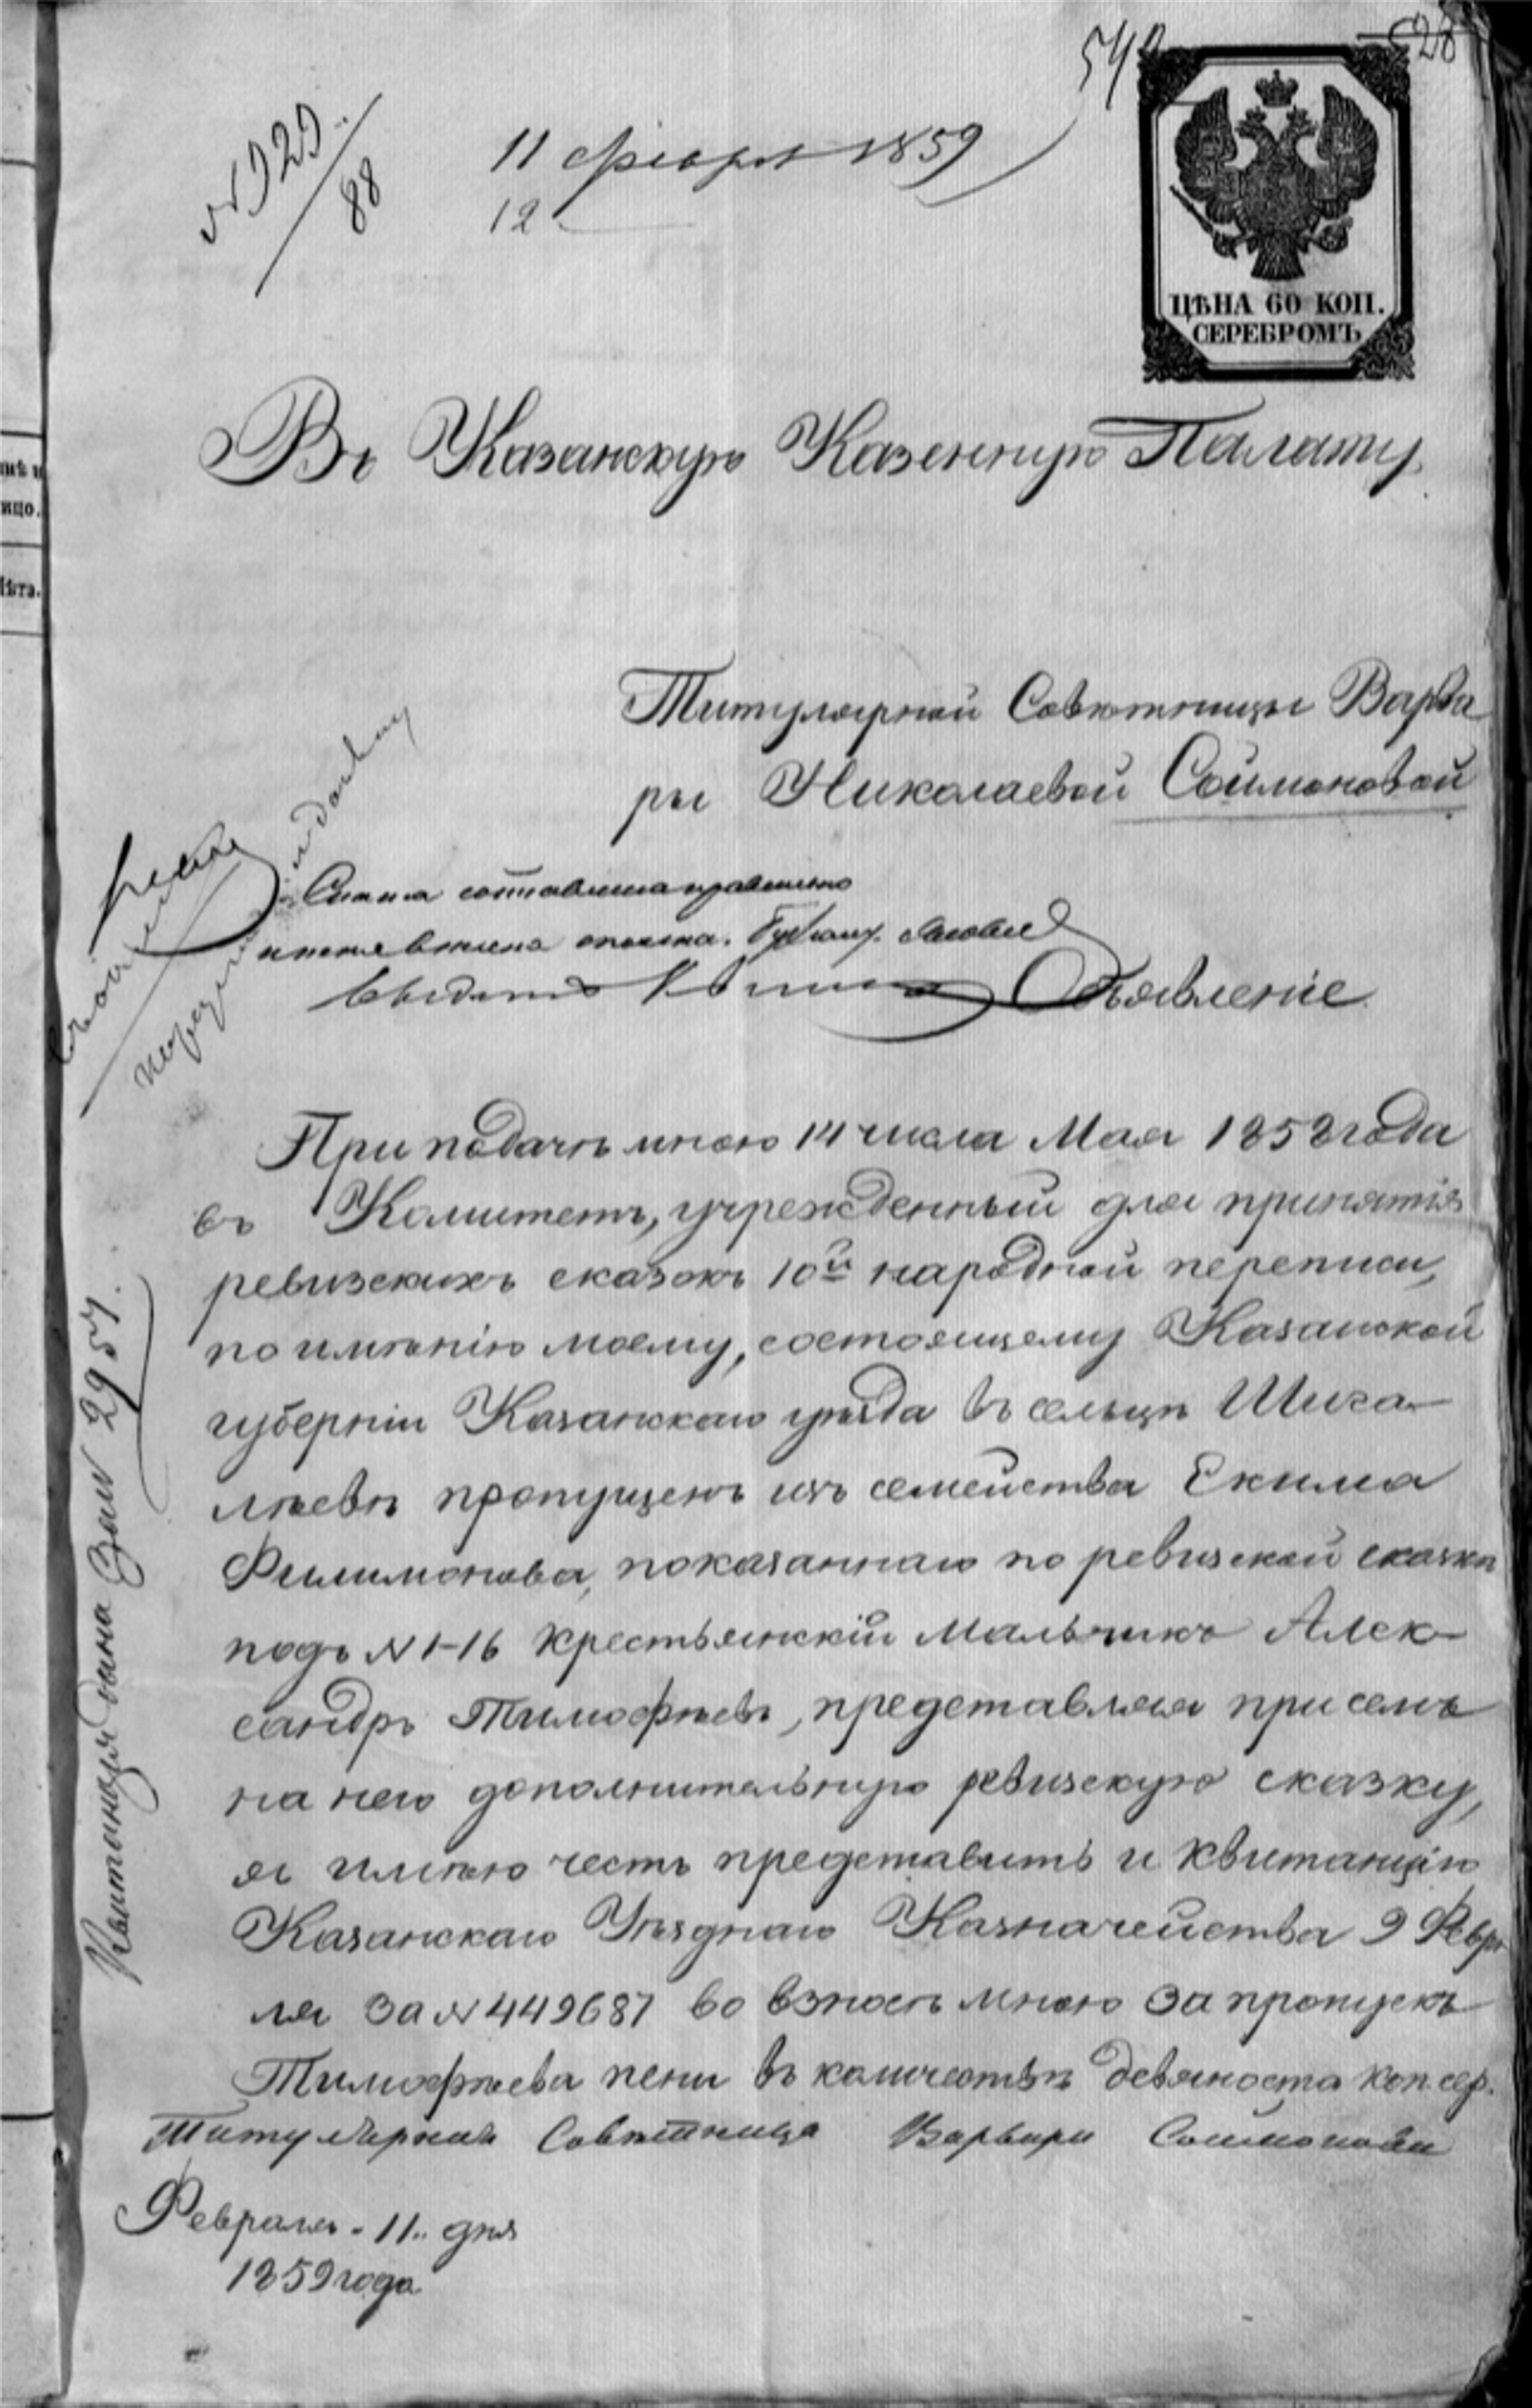 540
28
N 929
88
11 февраля 1859
12
ЦѢНА 60 КОП.
СЕРЕБРОМЪ
Въ Казанскую Казенную Палату.
Титулярной Совѣтницы Варва
ры Николаевой Соймоновой
Сказка составлена правильно
Объявленіе
При подачѣ мною 14 числа Мая 1858 года
въ Комитетъ, учрежденный для принятія
ревизскихъ сказокъ 10й народной переписи,
по имѣнію моему, состоящему Казанской
губерніи Казанскаго уѣзда въ сельцѣ Шига-
лѣевѣ пропущенъ изъ семейства Екима
Филимонова, показаннаго по ревизской сказкѣ
подъ N 1-16 крестьянскій мальчикъ Алек-
сандръ Тимофѣевъ, представляя при семъ
на него дополнительную ревизскую сказку,
я имѣю честь представить и квитанцію
Казанскаго Уѣзднаго Казначейства 9 Февра
ля за N 449687 во взносѣ мною за пропускъ
Тимофѣева пени въ количествѣ девяноста коп. сер.
Титулярная Совѣтница Варвара Соймонова
Февраля 11 дня
1859 года
Квитанція дана за N 2957.